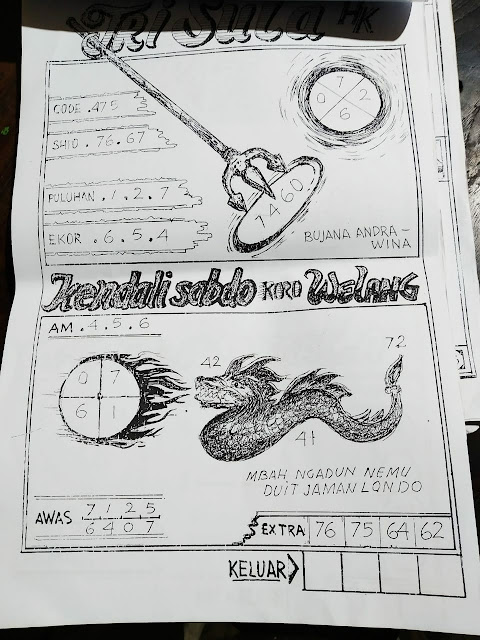 Tri Sula HK
CODE .475
7
0 2
6
SHIO .76.67
PULUHAN .1.2.7
7460
EKOR .6.5.4
BUJANA ANDRA-
WINA
Kendali sabdo KARO WELANG
AM .4.5.6
72
42
0 7
6 1
41
MBAH NGADUN NEMU
DUIT JAMAN LONDO
AWAS 7 1 2 5
6 4 0 7
EXTRA 76 75 64 62
KELUAR